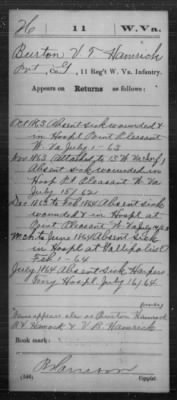 H 11 W.Va.
Burton V T Hamrick
Pvt., Co. G, 11 Reg't W. Va. Infantry.
Appears on Returns as follows:
Oct 1863 Absent sick wounded &
in Hospl Point Pleasant
W. Va July 1-63
Nov 1863 Attached to 13 W. Va
Absent sick wounded in
Hosp Pt Pleasant W Va
July
Dec 1863 to Feb 1864 Absent sick
wounded & in Hospl at
Point Pleasant W Va July
Mch to June 1864 Absent sick
in Hospl at Gallipolis O
Feb 1-64
July 1864 Absent sick Harpers
Ferry Hospl. July 16/64.
Name appears also as Burton Hamrick
& V. B. Hamrick
Book mark:
(546) Copyist.